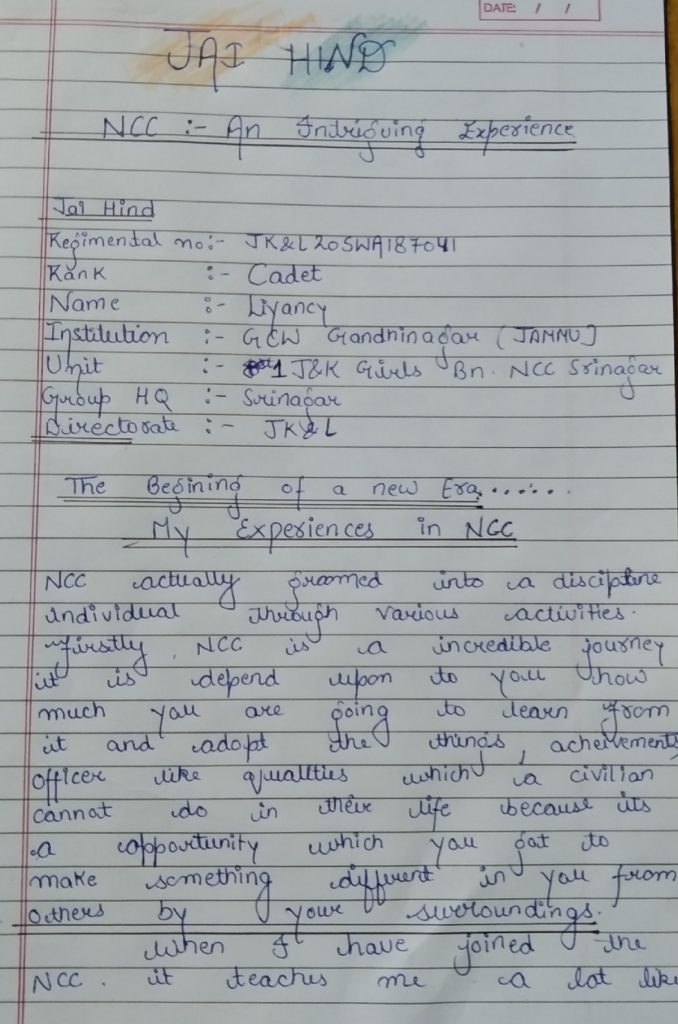 DATE: / /
JAI HIND
NCC :- An Intriguing Experience
Jai Hind
Regimental no:- JK&L20SWA187041
Rank :- Cadet
Name :- Liyancy
Institution :- GCW Gandhinagar (JAMMU)
Unit :- 1 J&K Girls Bn. NCC Srinagar
Group HQ :- Srinagar
Directorate :- JK&L
The Begining of a new Era......
My Experiences in NCC
NCC actually groomed into a discipline
individual through various activities.
Firstly, NCC is a incredible journey
it is depend upon to you how
much you are going to learn from
it and adopt the things, acheivements
officer like qualities which a civilian
cannat do in their life because its
a opportunity which you gat to
make something different in you from
others by your surroundings.
When I have joined the
NCC. it teaches me a lot like